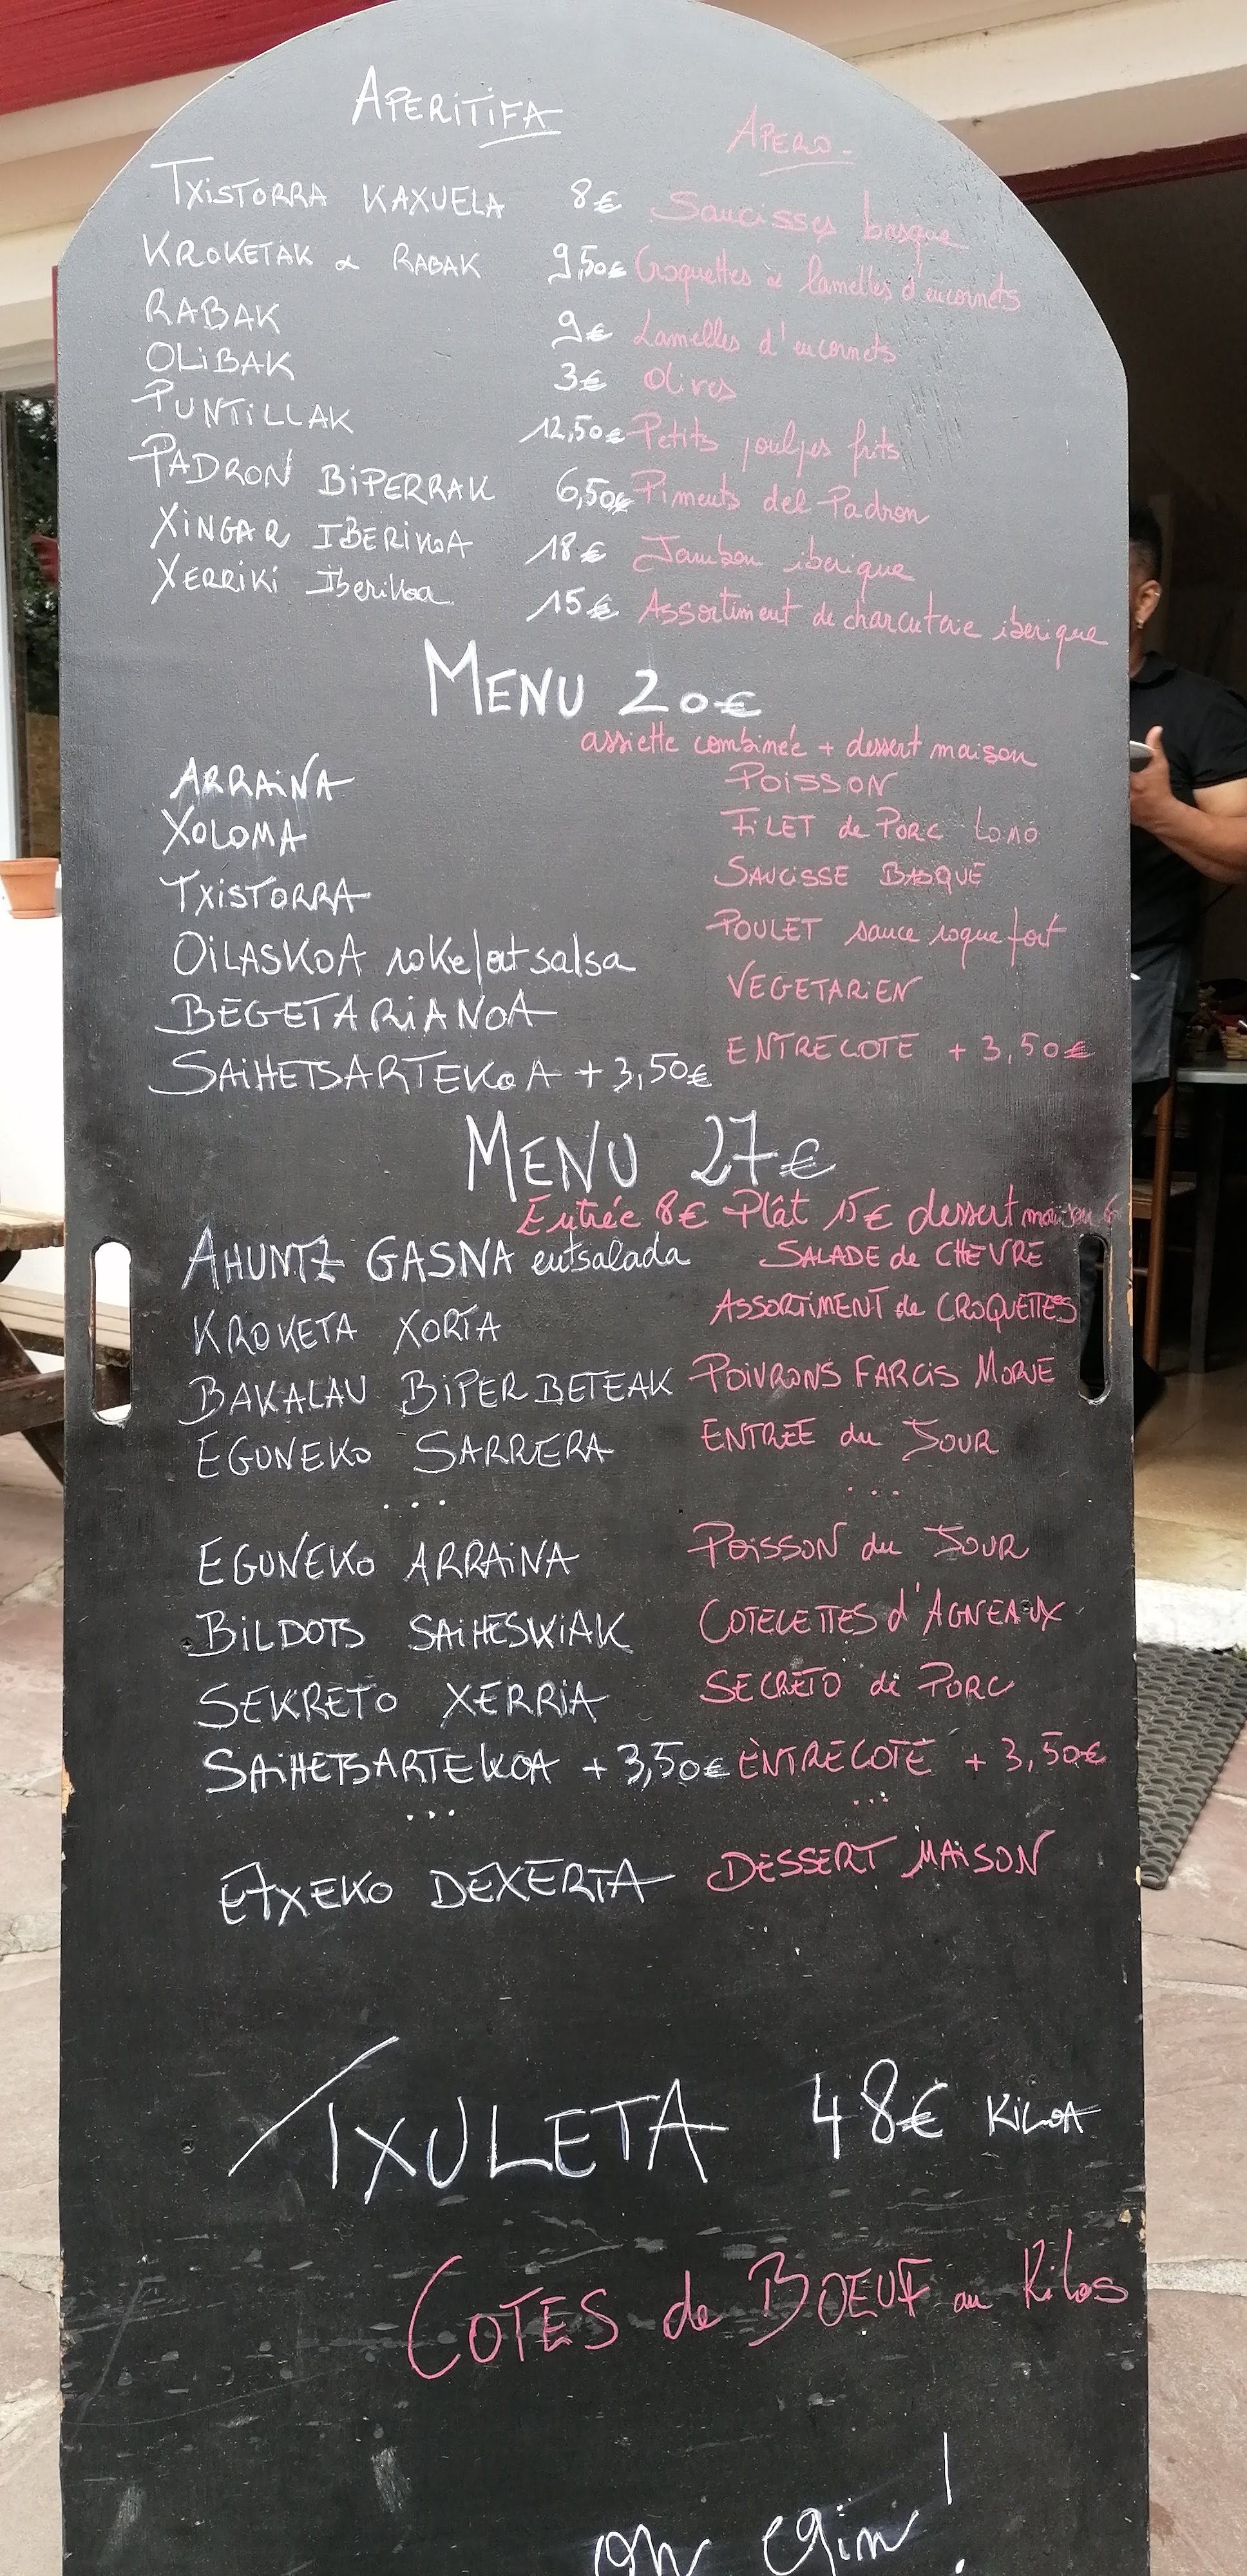 APERITIFA
APERO
TXiSTORRA KAXUELA 8€ Saucisses basque
KROKETAK & RABAK 9,50€ Croquettes & lamelles d'encornets
RABAK 9€ Lamelles d'encornets
OLiBAK 3€ Olives
PUNTiLLAK 12,50€ Petits poulpes frits
PADRON BiPERRAK 6,50€ Piments del Padron
XiNGAR IBERiKOA 18€ Jambon iberique
XERRiKi Iberikoa 15€ Assortiment de charcuterie iberique
MENU 20€
assiette combinée + dessert maison
ARRAiNA POISSON
XOLOMA FiLET de PORC LOMO
TXiSTORRA SAUCISSE BASQUE
OiLASKOA rokefort salsa POULET sauce roquefort
BEGETARiANOA VEGETARiEN
SAiHETSARTEKOA + 3,50€ ENTRECOTE + 3,50€
MENU 27€
Entrée 8€ Plât 15€ dessert maison
AHUNTZ GASNA entsalada SALADE de CHEVRE
KROKETA XORTA ASSORTiMENT de CROQUETTES
BAKALAU BiPER BETEAK POIVRONS FARCiS MORUE
EGUNEKO SARRERA ENTREE du JOUR
.... ...
EGUNEKO ARRAiNA POiSSON du JOUR
BiLDOTS SAiHESKiAK COTELETTES d'AGNEAUX
SEKRETO XERRiA SECRETO de PORC
SAiHETSARTEKOA + 3,50€ ENTRECOTE + 3,50€
... ...
ETXEKO DEXERTA DESSERT MAiSON
TXULETA 48€ KiLOA
COTES de BOEUF au Kilos
on egin!